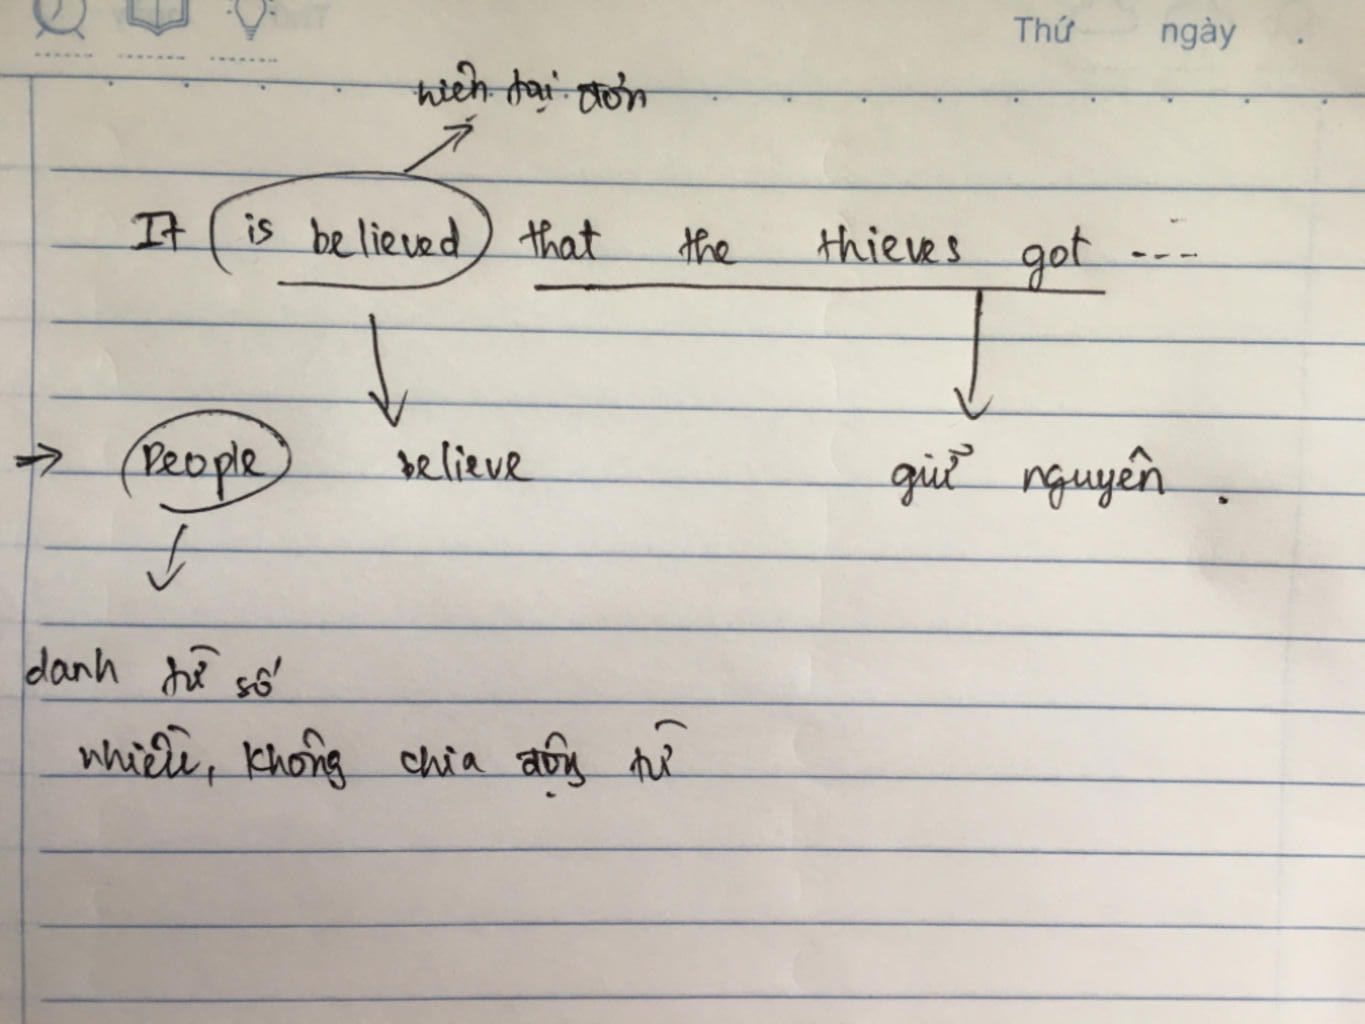 Thứ ngày .
hiện tại đơn
It is believed that the thieves got ---
→ People believe giữ nguyên .
danh từ số
nhiều, không chia động từ